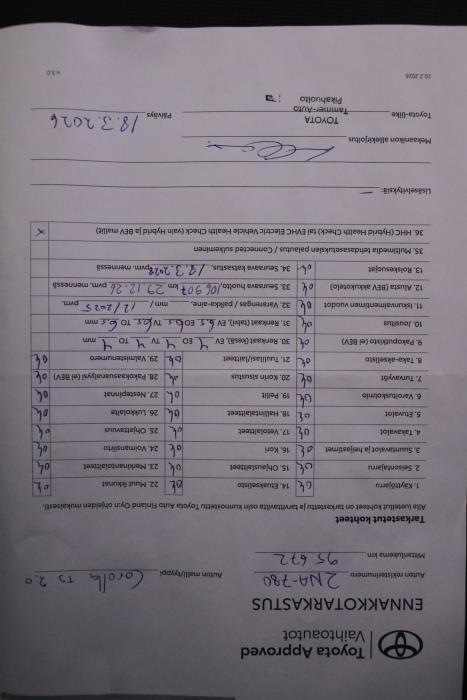 Toyota Approved
Vaihtoautot
ENNAKKOTARKASTUS
Auton rekisterinumero 2NA-780 Auton malli/tyyppi Corolla TS 2.0
Mittarilukema km 95 672
Tarkastetut kohteet
Alla luetellut kohteet on tarkastettu ja tarvittavilta osin kunnostettu Toyota Auto Finland Oy:n ohjeiden mukaisesti.
1. Käyttöjarru ok 14. Etuakselisto ok 22. Muut likuinat ok
2. Seisontajarru ok 15. Ohjauslaitteet ok 23. Merkinantolaitteet ok
3. Suuntavalot ja heijastimet ok 16. Kori ok 24. Voimansiirto ok
4. Takavalot ok 17. Vetolaitteet ok 25. Ohjattavuus ok
5. Etuvalot ok 18. Hallintalaitteet ok 26. Lukkolaite ok
6. Varoituskolmio ok 19. Peilit ok 27. Nestepinnat ok
7. Turvavyöt ok 20. Korin sisustus ok 28. Pakokaasuanalyysi (ei BEV) ok
8. Taka-akselisto ok 21. Tuulilasi/laitteet ok 29. Valmistenumero ok
9. Pakoputkisto (ei BEV) ok 30. Renkaat (kesä), EV 4 EO 4 TV 4 TO 4 mm
10. Jousitus ok 31. Renkaat (talvi), EV 6,5 EO 6,5 TV 6,5 TO 6,5 mm
11. Iskunvaimentimien vuodot ok 32. Vararengas / paikka-aine, mm / 12/2025 pvm.
12. Alusta (BEV akkukotelo) ok 33. Seuraava huolto, 106 907 km 29.12.26 pvm. mennessä
13. Roiskesuojat ok 34. Seuraava katsastus, 19.3.2028 pvm. mennessä
35. Multimedia tehdasasetuksien palautus / Connected sulkeminen
36. HHC (Hybrid Health Check) tai EVHC Electric Vehicle Health Check (vain Hybrid ja BEV mallit) x
Lisäselvityksiä: –
Mekaanikon allekirjoitus
Toyota-liike TOYOTA Päiväys 18.3.2026
Tammer-Auto
Pikahuolto
10.2.2026 v 3.0